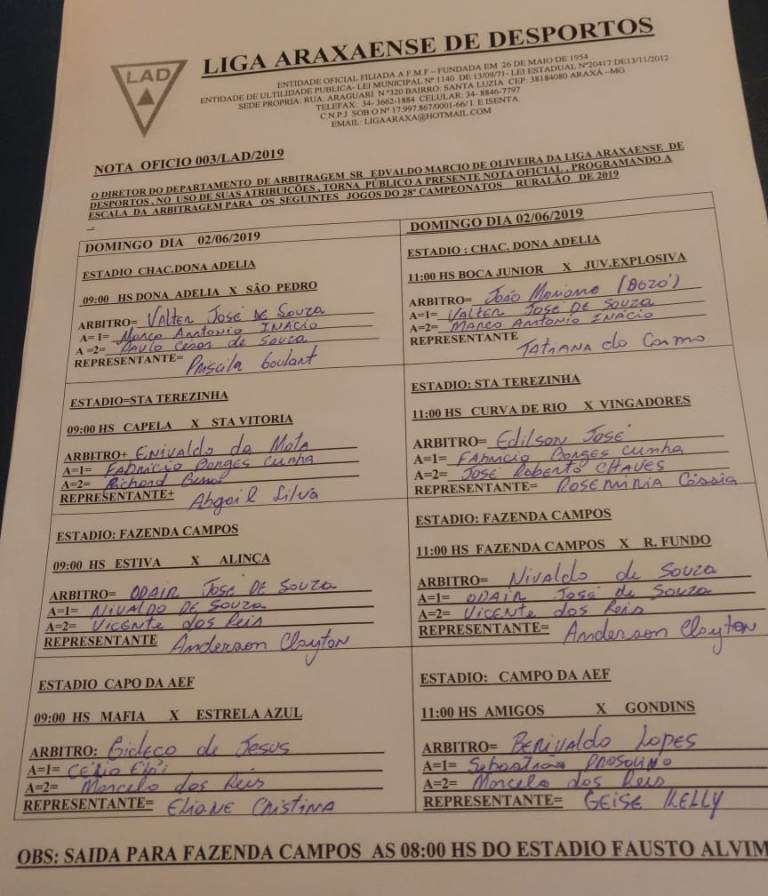 LAD
LIGA ARAXAENSE DE DESPORTOS
ENTIDADE OFICIAL FILIADA A F.M.F – FUNDADA EM 26 DE MAIO DE 1954
ENTIDADE DE ULTILIDADE PUBLICA- LEI MUNICIPAL Nº 1140 DE 13/09/71- LEI ESTADUAL Nº20417 DE13/11/2012
SEDE PROPRIA: RUA: ARAGUARI N º320 BAIRRO: SANTA LUZIA CEP: 38184080 ARAXÁ –MG
TELEFAX: 34- 3662-1884 CELULAR: 34- 8846-7797
C.N.P.J SOB O Nº 17.997.867/0001-66/ I. E ISENTA
EMAIL: LIGAARAXA@HOTMAIL.COM
NOTA OFICIO 003/LAD/2019
O DIRETOR DO DEPARTAMENTO DE ARBITRAGEM SR EDVALDO MARCIO DE OLIVEIRA DA LIGA ARAXAENSE DE
DESPORTOS , NO USO DE SUAS ATRIBUIÇÕES , TORNA PÚBLICO A PRESENTE NOTA OFICIAL , PROGRAMANDO A
ESCALA DA ARBITRAGEM PARA OS SEGUINTES JOGOS DO 28º CAMPEONATOS RURALÃO DE 2019
DOMINGO DIA 02/06/2019
ESTADIO CHAC.DONA ADELIA
09:00 HS DONA ADELIA X SÃO PEDRO
ARBITRO= Valter José de Souza
A= 1= Marco Antonio Inácio
A =2= Paulo Cesar de Souza
REPRESENTANTE= Priscila Goulart
DOMINGO DIA 02/06/2019
ESTADIO : CHAC. DONA ADELIA
11:00 HS BOCA JUNIOR X JUV.EXPLOSIVA
ARBITRO= João Mariano (Bozó)
A=1= Valter José de Souza
A=2= Marco Antonio Inácio
REPRESENTANTE Tatiana do Carmo
ESTADIO=STA TEREZINHA
09:00 HS CAPELA X STA VITORIA
ARBITRO+ Enivaldo da Mota
A=1= Fabricio Borges Cunha
A=2= Richard
REPRESENTANTE+ Abgail Silva
ESTADIO: STA TEREZINHA
11:00 HS CURVA DE RIO X VINGADORES
ARBITRO= Edilson José
A=1= Fabricio Borges Cunha
A=2= José Roberto Chaves
REPRESENTANTE= Rosemiria Cássia
ESTADIO: FAZENDA CAMPOS
09:00 HS ESTIVA X ALINÇA
ARBITRO= Odair José de Souza
A=1= Nivaldo de Souza
A=2= Vicente dos Reis
REPRESENTANTE Anderson Clayton
ESTADIO: FAZENDA CAMPOS
11:00 HS FAZENDA CAMPOS X R. FUNDO
ARBITRO= Nivaldo de Souza
A=1= Odair José de Souza
A=2= Vicente dos Reis
REPRESENTANTE= Anderson Clayton
ESTADIO CAPO DA AEF
09:00 HS MAFIA X ESTRELA AZUL
ARBITRO: de Jesus
A=1= Célio Elói
A=2= Marcelo dos Reis
REPRESENTANTE= Eliane Cristina
ESTADIO: CAMPO DA AEF
11:00 HS AMIGOS X GONDINS
ARBITRO= Benivaldo Lopes
A=1= Sebastião
A=2= Marcelo dos Reis
REPRESENTANTE= Geise Kelly
OBS: SAIDA PARA FAZENDA CAMPOS AS 08:00 HS DO ESTADIO FAUSTO ALVIM